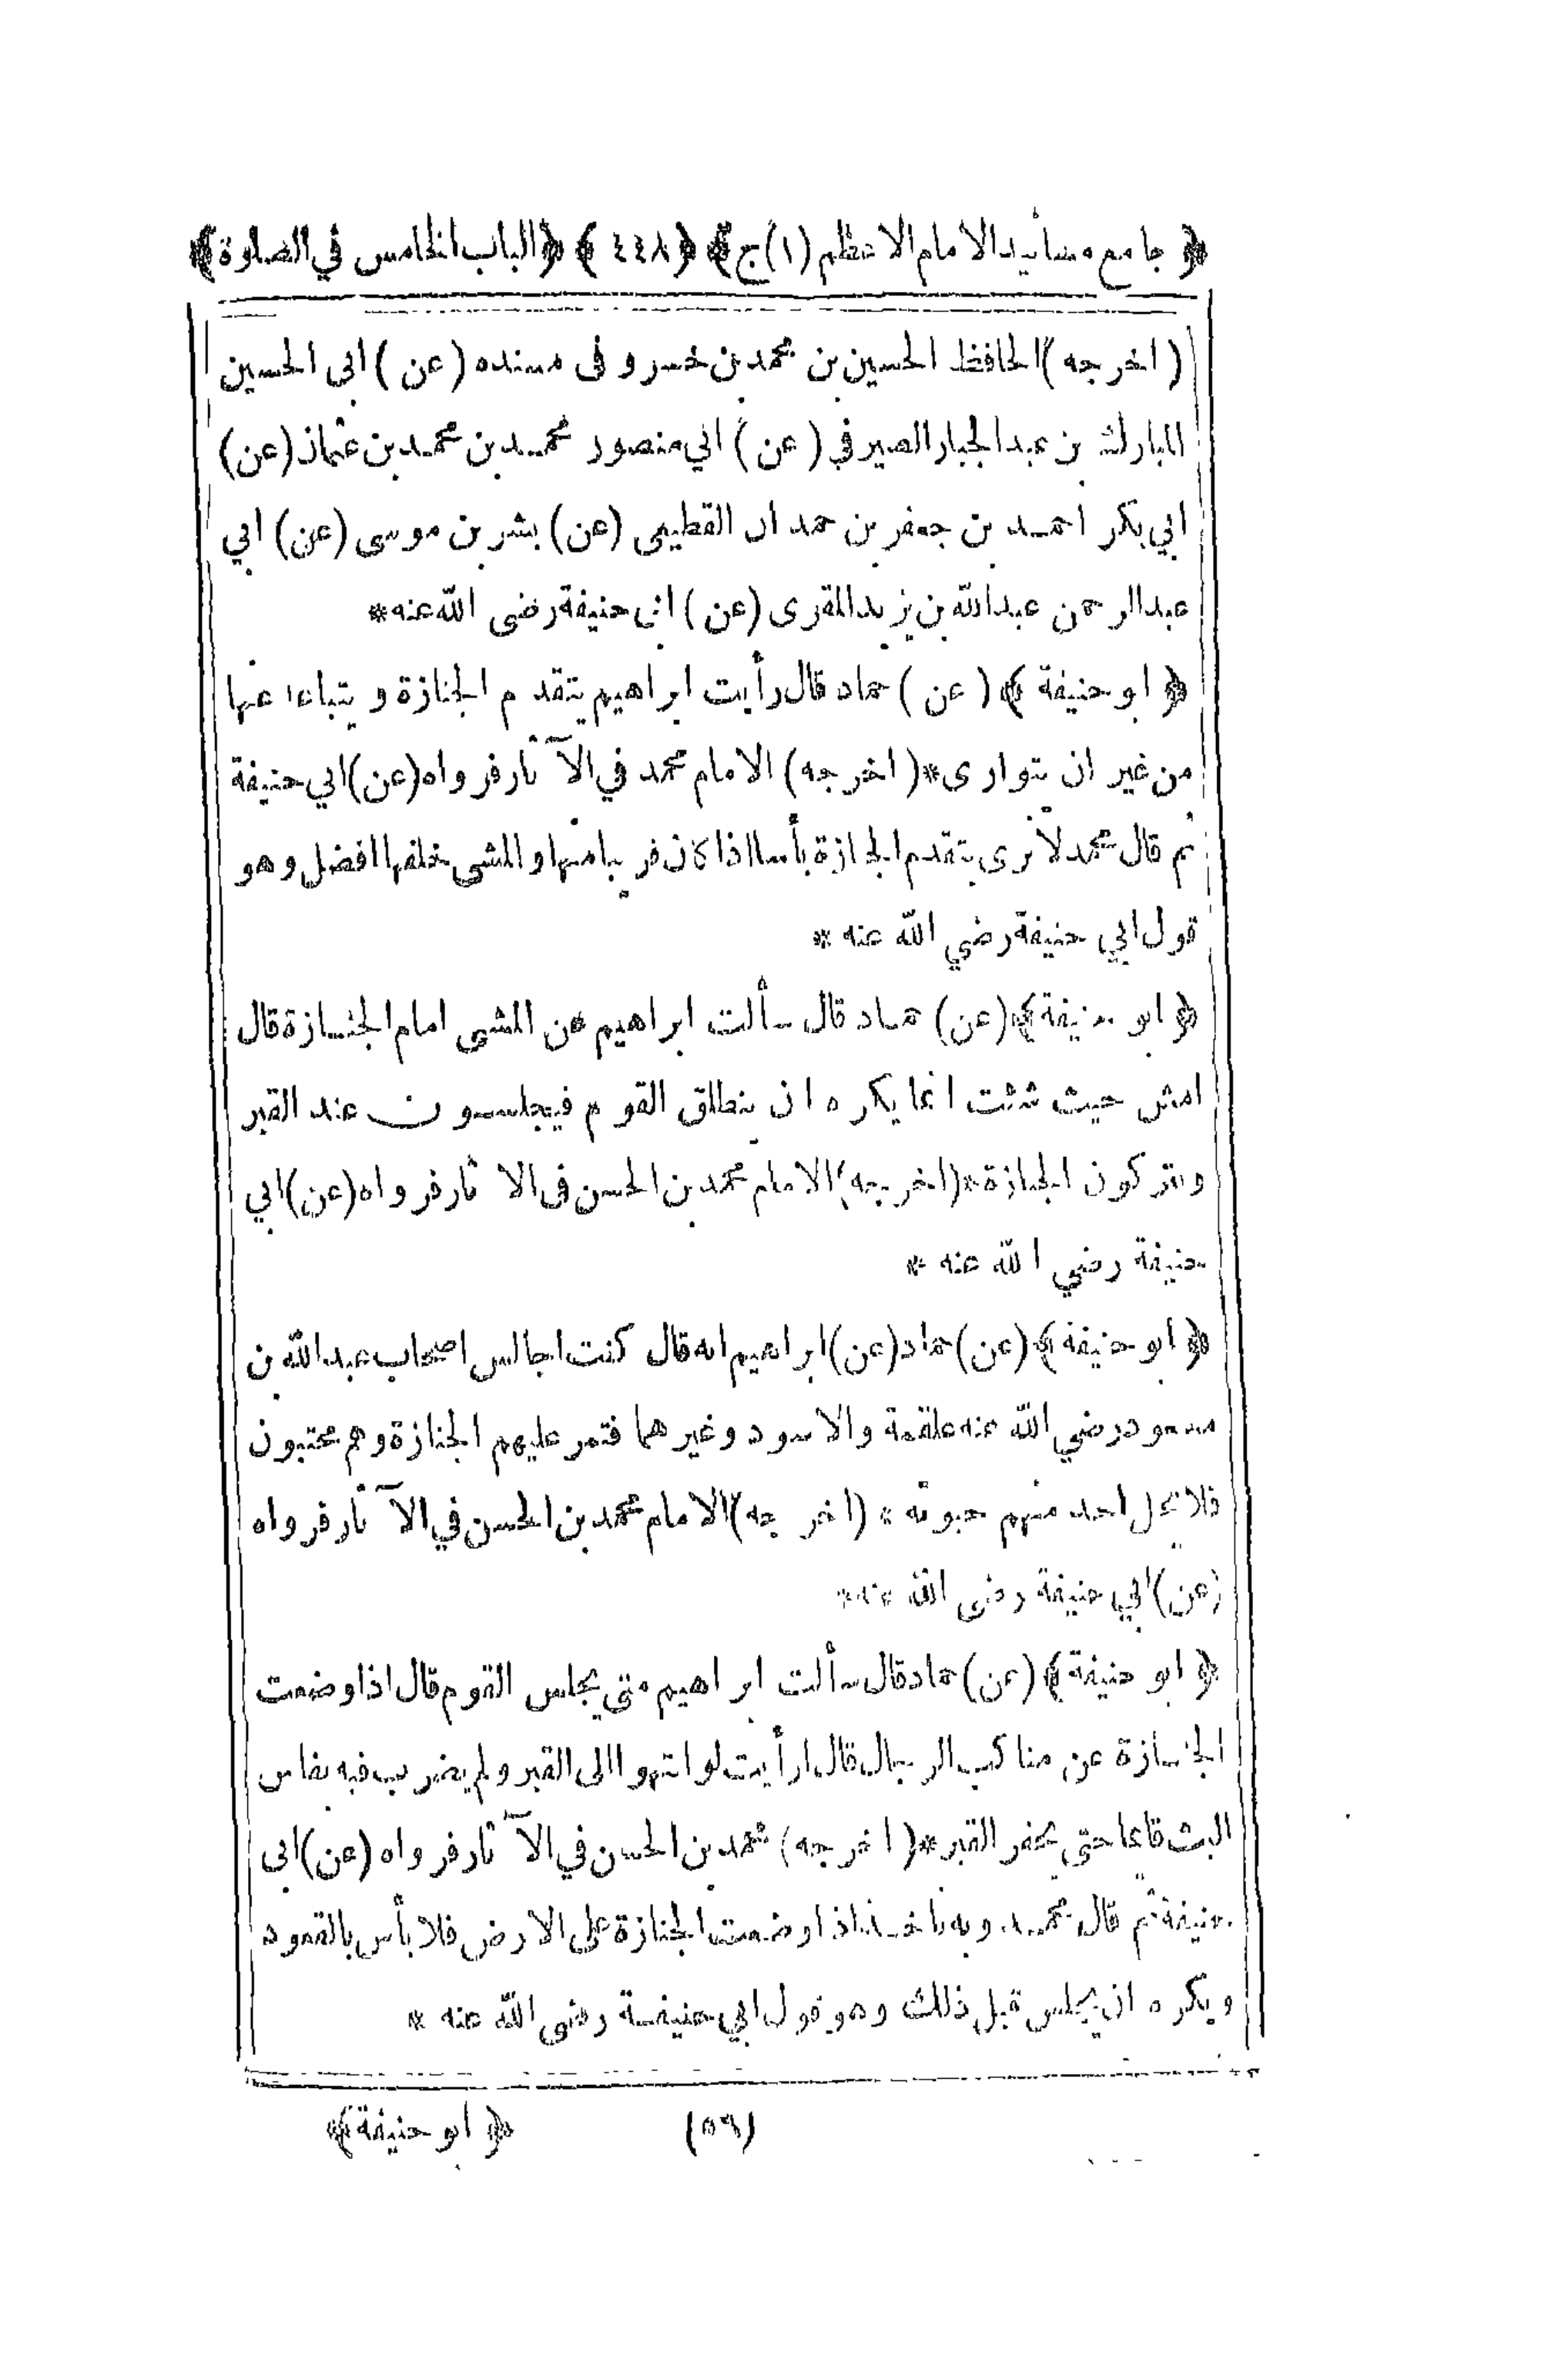 ﴿ جامع مسانيد الامام الاعظم (١) ج ﴾ ﴿ ٤٤٨ ﴾ ﴿ الباب الخامس في الصلوة ﴾
( اخرجه ) الحافظ الحسين بن محمد بن خسرو فى مسنده ( عن ) ابى الحسين
المبارك بن عبد الجبار الصيرفي ( عن ) ابي منصور محمد بن محمد بن عثمان (عن)
ابي بكر احمد بن جعفر بن حمدان القطيعى (عن) بشر بن موسى (عن) ابي
عبد الرحمن عبد الله بن يزيد المقرى (عن ) ابى حنيفة رضى الله عنه *
﴿ ابو حنيفة ﴾ ( عن ) حماد قال رأيت ابراهيم يتقدم الجنازة و يتباعد عنها
من غير ان يتوارى * ( اخرجه ) الامام محمد في الآثار فرواه (عن) ابي حنيفة
ثم قال محمد لا نرى بتقدم الجنازة بأسا اذا كان قريبا منها والمشى خلفها افضل وهو
قول ابي حنيفة رضي الله عنه *
﴿ ابو حنيفة ﴾ (عن) حماد قال سألت ابراهيم عن المشى امام الجنازة قال
امش حيث شئت انما يكره ان ينطلق القوم فيجلسون عند القبر
ويتركون الجنازة * (اخرجه) الامام محمد بن الحسن فى الاثار فرواه (عن) ابي
حنيفة رضي الله عنه *
﴿ ابو حنيفة ﴾ (عن) حماد (عن) ابراهيم انه قال كنت اجالس اصحاب عبد الله بن
مسعود رضي الله عنه علقمة والاسود وغيرهما فتمر عليهم الجنازة وهم محتبون
فلا يحل احد منهم حبوته * (اخرجه) الامام محمد بن الحسن في الآثار فرواه
(عن) ابي حنيفة رضى الله عنه *
﴿ ابو حنيفة ﴾ (عن) حماد قال سألت ابراهيم متى يجلس القوم قال اذا وضعت
الجنازة عن مناكب الرجال قال ارأيت لو انتهوا الى القبر ولم يضرب فيه بفاس
البث قائما حتى يحفر القبر * ( اخرجه ) محمد بن الحسن في الآثار فرواه (عن) ابى
حنيفة ثم قال محمد وبه ناخذ اذا وضعت الجنازة على الارض فلا بأس بالقعود
ويكره ان يجلس قبل ذلك وهو قول ابي حنيفة رضى الله عنه *
(٥٦) ﴿ ابو حنيفة ﴾